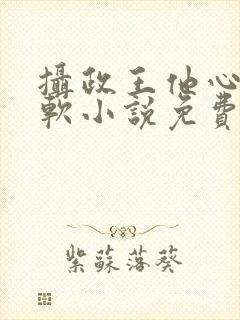 攝政王他心
軟小說免費
紫蘇落葵